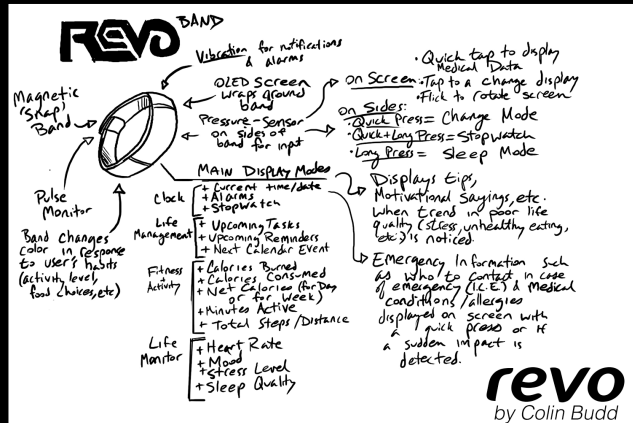 REVO BAND
Vibration for notifications
& alarms
OLED Screen
wraps around
band
Pressure-Sensor
on sides of
band for input
Magnetic
"Snap"
Band
Pulse
Monitor
Band changes
color in response
to user's habits
(activity level,
food choices, etc)
• Quick tap to display
Medical Data
on Screen: • Tap to a change display
• Flick to rotate screen
on Sides:
• Quick Press = Change Mode
• Quick + Long Press = Stopwatch
• Long Press = Sleep Mode
Main Display Modes
Clock
+ Current time/date
+ Alarms
+ Stopwatch
Life
Management
+ Upcoming Tasks
+ Upcoming Reminders
+ Next Calendar Event
Fitness
+
Activity
+ Calories Burned
+ Calories Consumed
+ Net Calories (for Day
or for Week)
+ Minutes Active
+ Total Steps/Distance
Life
Monitor
+ Heart Rate
+ Mood
+ Stress Level
+ Sleep Quality
Displays tips,
Motivational Sayings, etc.
when trend in poor life
quality (stress, unhealthy eating,
etc.) is noticed.
Emergency Information such
as who to contact in case
of emergency (I.C.E.) & Medical
conditions/allergies
displayed on screen with
a quick press or if
a sudden impact is
detected.
revo
by Colin Budd